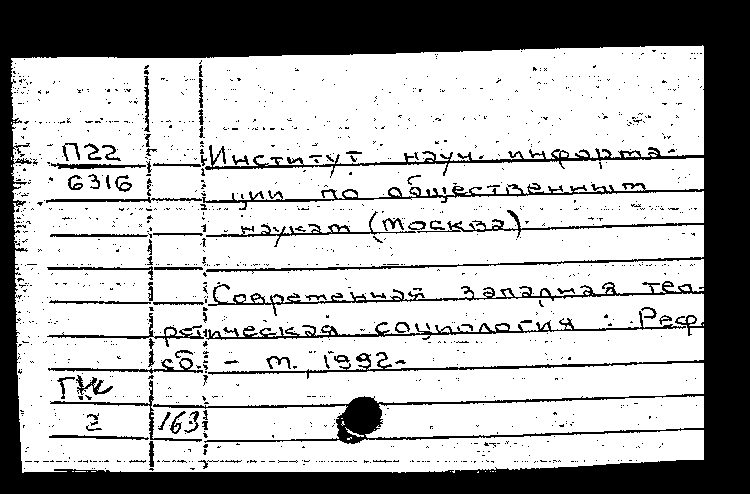 П22
6316
Институт науч. информа-
ции по общественным
наукам (Москва)
Современная западная тео-
ретическая социология : Реф.
сб. – М., 1992-
2 163